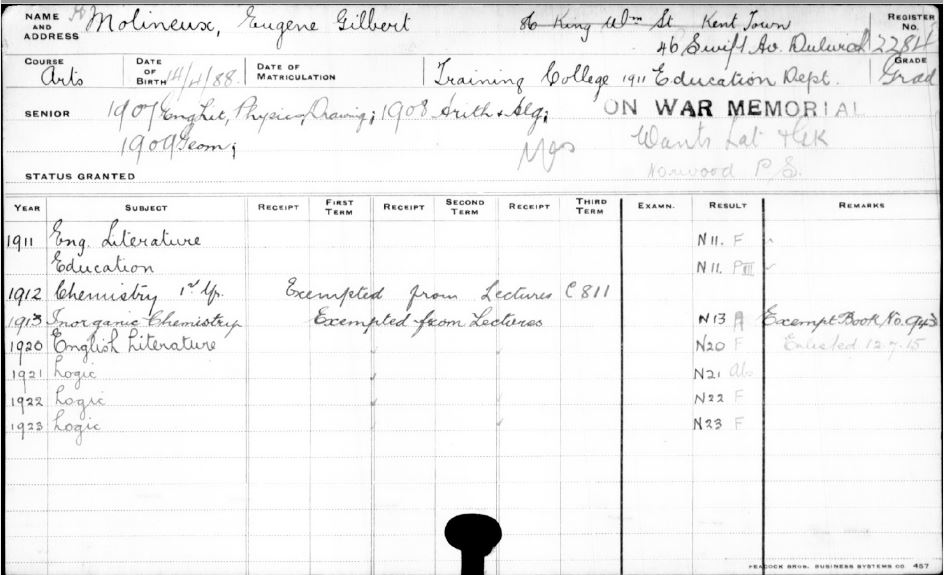 NAME AND ADDRESS Molineux, Eugene Gilbert 86 King Wm St Kent Town REGISTER No.
46 Swift Av. Dulwich 2284
COURSE Arts DATE OF BIRTH 14/4/88. DATE OF MATRICULATION Training College 1911 Education Dept. GRADE Grad
SENIOR 1907 Eng Lit, Physics, Drawing; 1908 Arith + Alg; ON WAR MEMORIAL
1909 Geom; Wants Lat + Gk
Norwood P.S.
STATUS GRANTED
YEAR SUBJECT RECEIPT FIRST TERM RECEIPT SECOND TERM RECEIPT THIRD TERM EXAMN. RESULT REMARKS
1911 Eng. Literature N11. F
Education N11. PIII
1912 Chemistry 1st Yr. Exempted from Lectures C811
1913 Inorganic Chemistry Exempted from Lectures N13 Exempt Book No. 943
1920 English Literature N20 F Enlisted 12.7.15
1921 Logic N21 Abs
1922 Logic N22 F
1923 Logic N23 F
PEACOCK BROS. BUSINESS SYSTEMS CO. 457